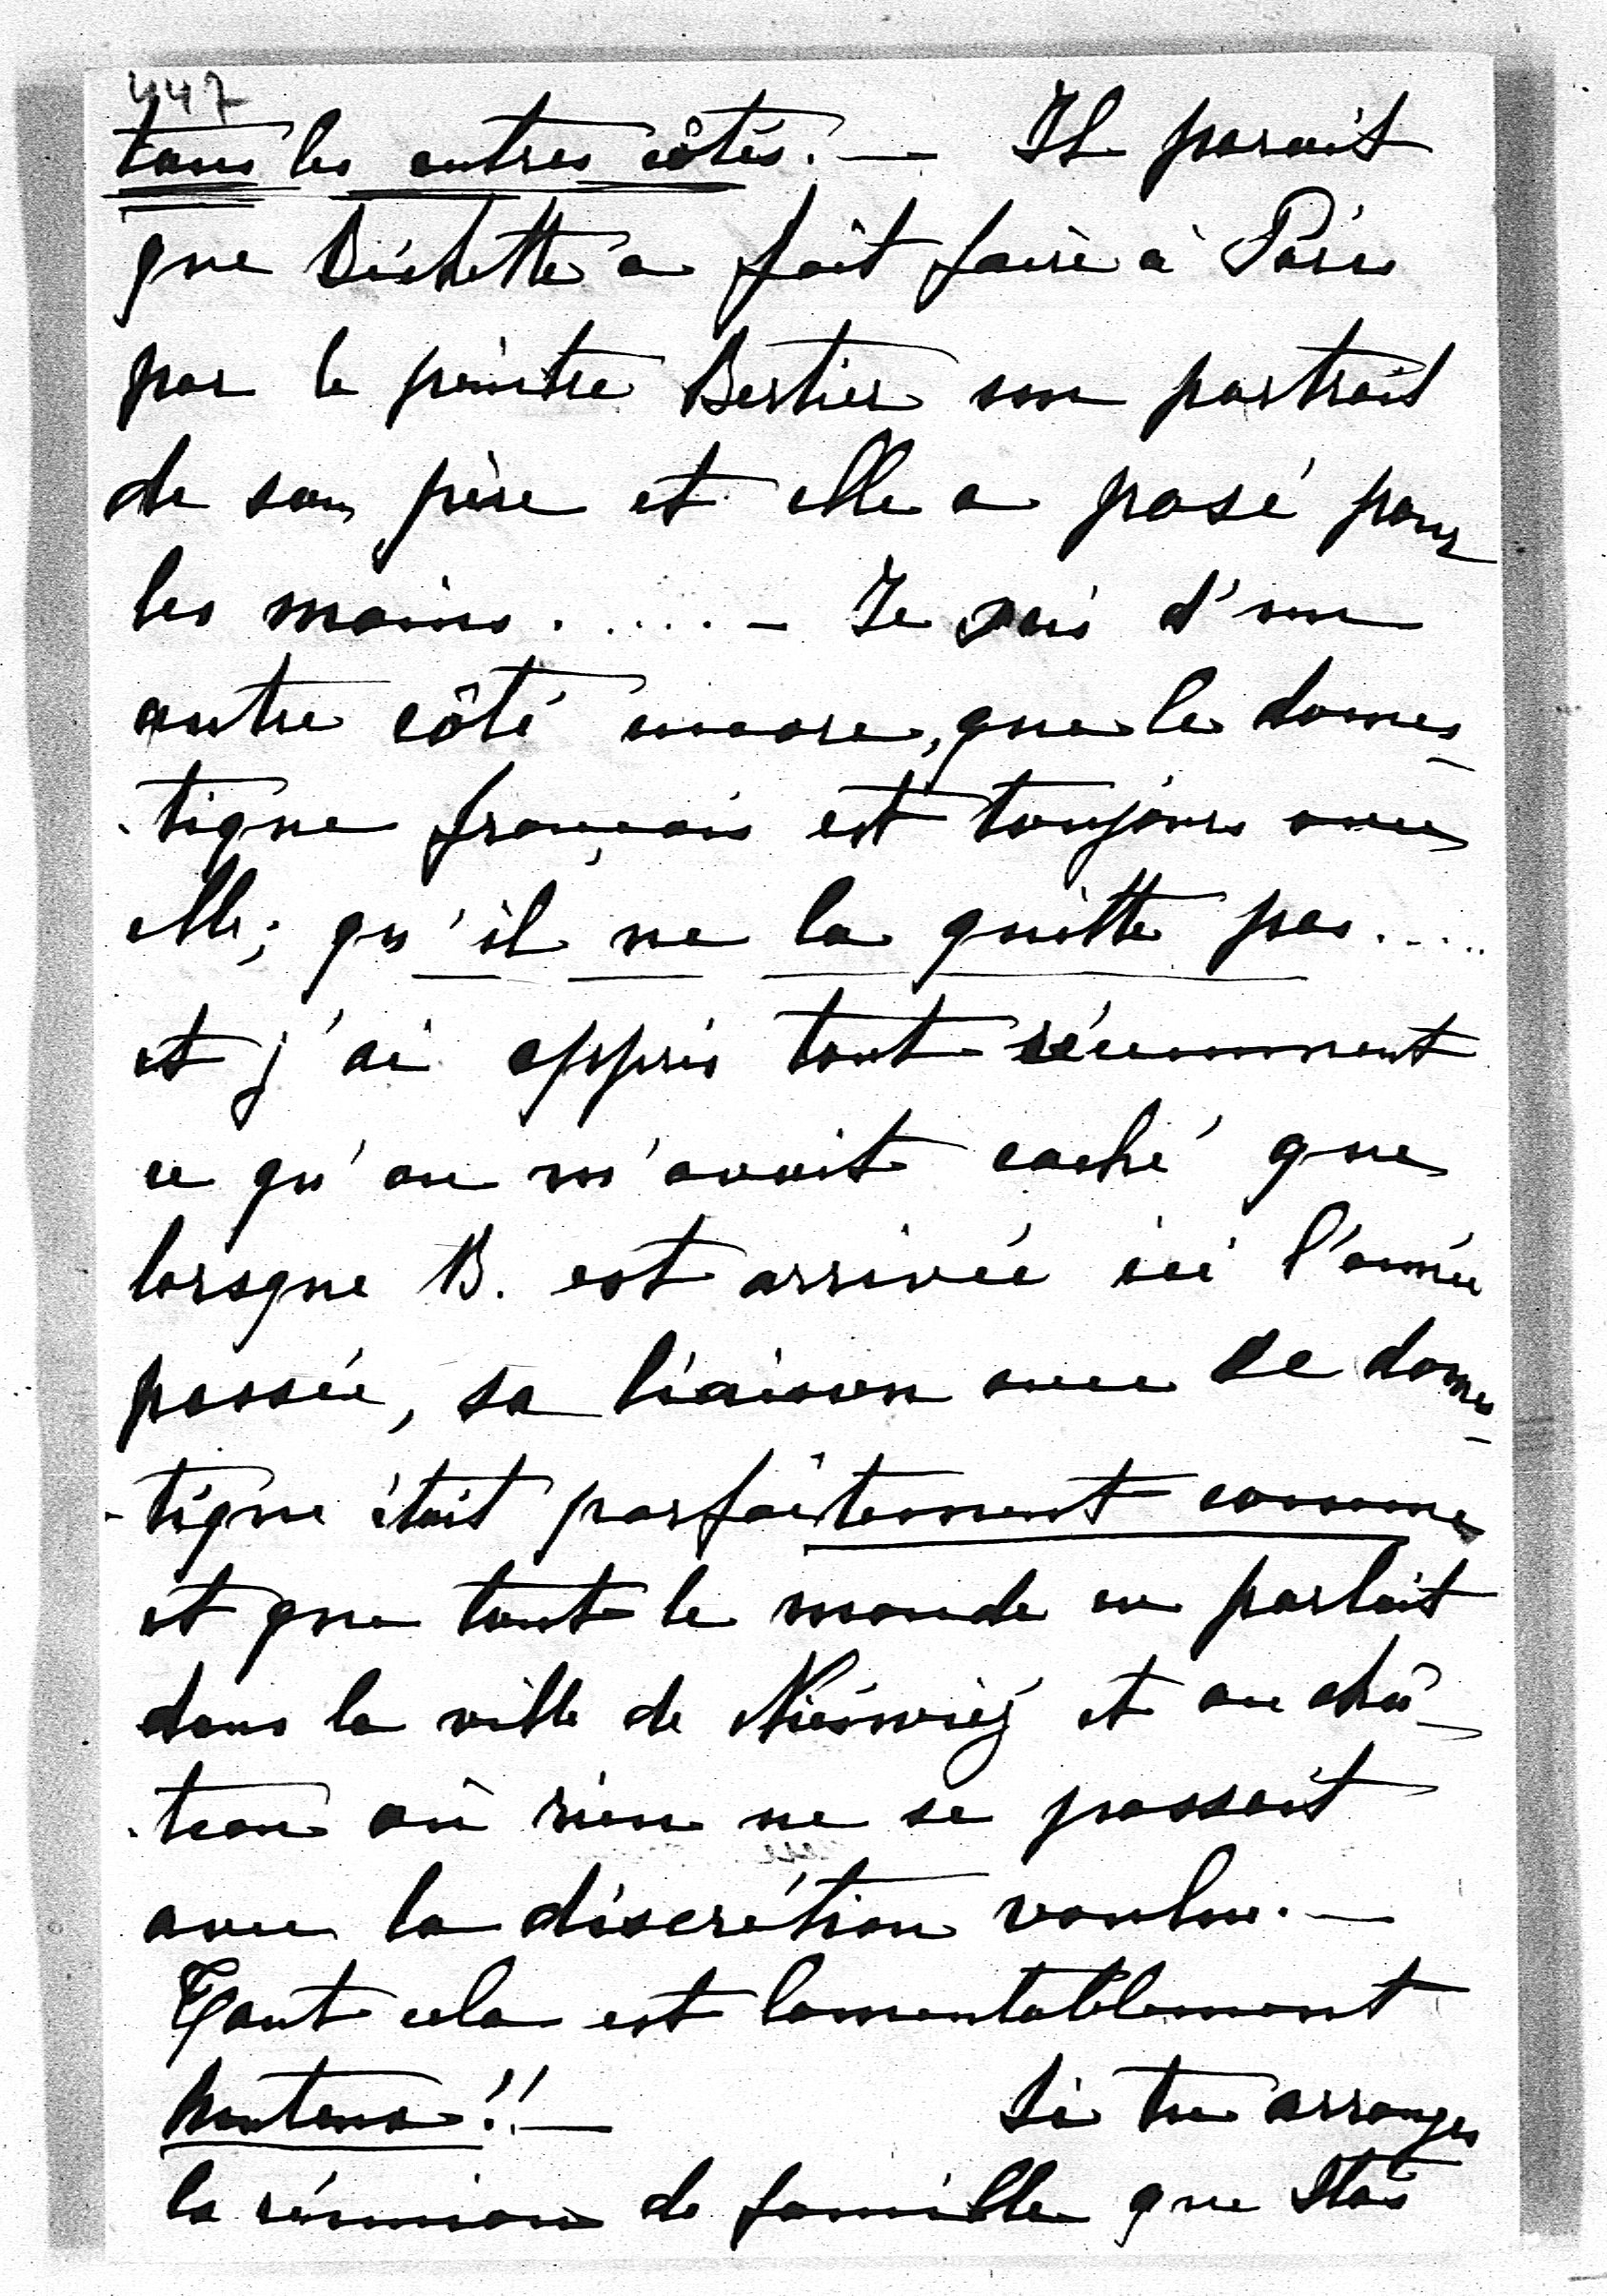 447
tous les autres côtés. — Il parait
que Bichette a fait faire à Paris
par le peintre Bertier son portrait
de son père et elle a posé pour
les mains . . . . . – Je sais d'un
autre côté encore, que le domes-
-tique français est toujours avec
elle; qu'il ne la quitte pas . . . . .
et j'ai appris tout récemment
ce qu'on m'avait caché que
lorsque B. est arrivée ici l'année
passée, sa liaison avec ce domes-
-tique était parfaitement connue
et que tout le monde en parlait
dans la ville de Nieświéź et au châ-
-teau où rien ne se passait
avec la discrétion voulue. —
Tout cela est lamentablement
honteux!! —   Si tu arranges
la réunion de famille que Staś